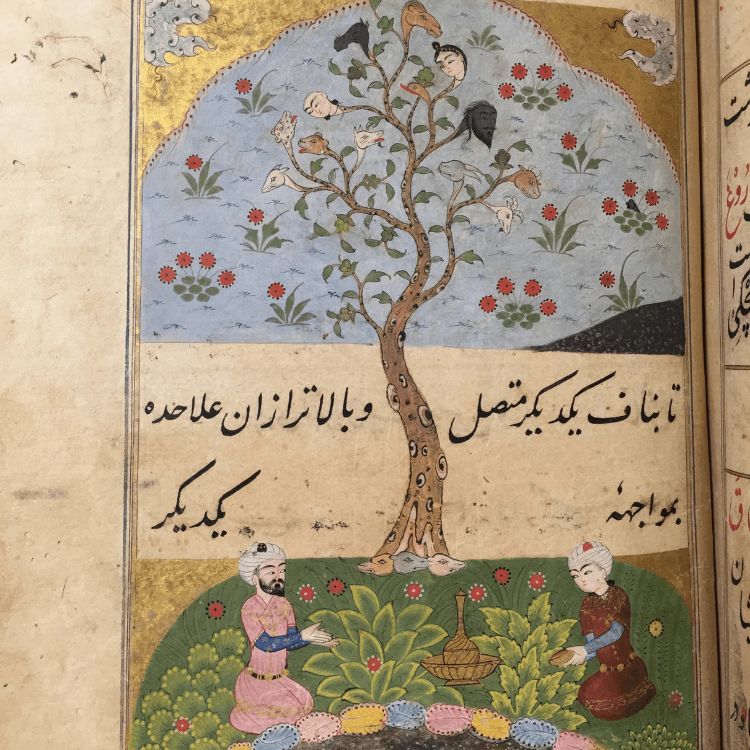 تا بناف یکدیکر متصل و بالاتر ازان علاحده
بمواجهۀ یکدیکر